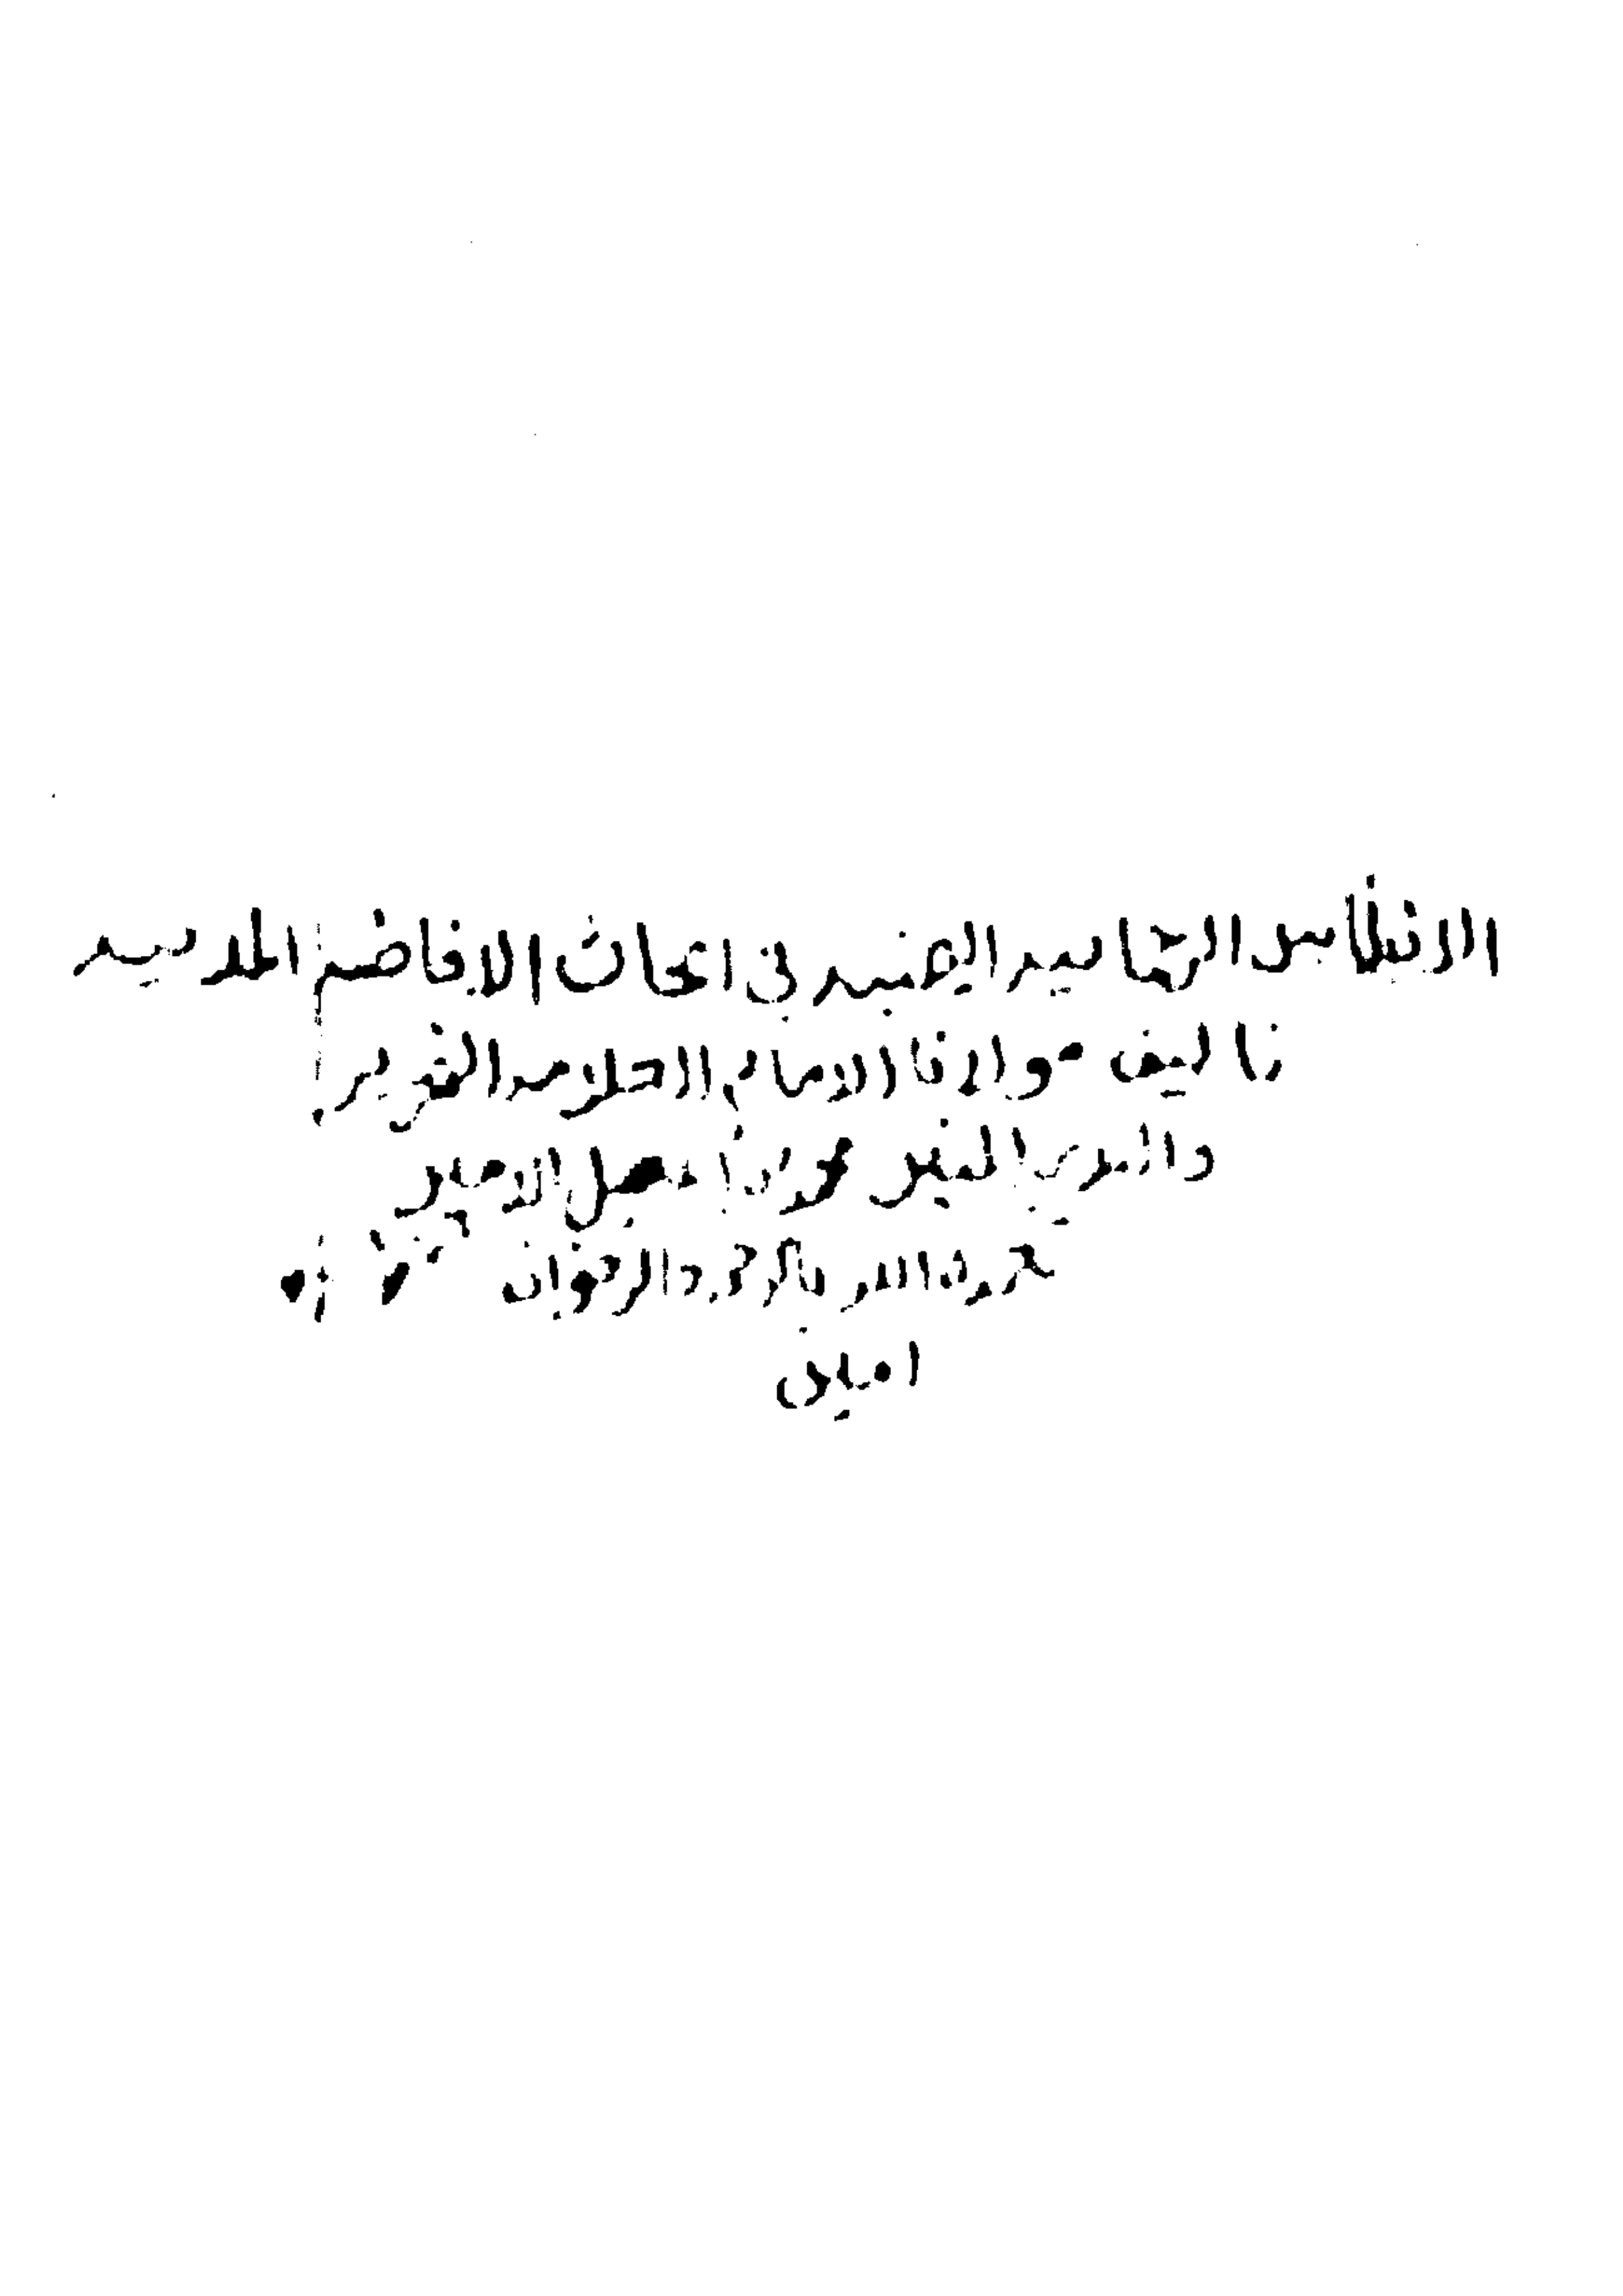 الانفاس الرحمانيه اليمنيه في ابحاث الافاضه المدنيه
تاليف مولانا الامام العلامه الفرير
والبدر المنير محمد بن اسمعيل الامير
تغمده الله بالرحمه والرضوان
امين